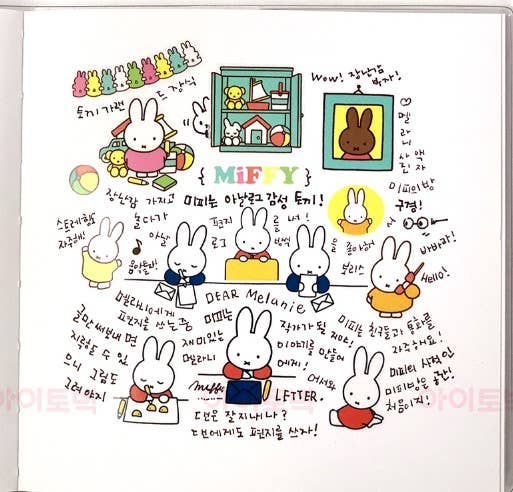 토끼 가랜드 장식
Wow! 장난감 박스!
♡ 멜라니 사진 액자
{ MiFFY }
미피는 아날로그 감성 토끼!
미피의 방 구경!
장난감 가지고 놀다가
스트레칭도 자주해!
편지를 써!
바바라!
Hello!
보리스
DEAR Melanie
멜라니에게 편지를 쓰는 중
미피는
작가가 될 거야!
재미있는 이야기를 만들어
멜라니 에게!
미피는 친구들과 통화를 자주해요!
글만 써보내면 지루할 수 있으니 그림도 그려야지
miffy
LETTER.
미피의 사적인
처음이지!
어서와
잘 지내니?
에게도 편지를 쓰자!
아이토